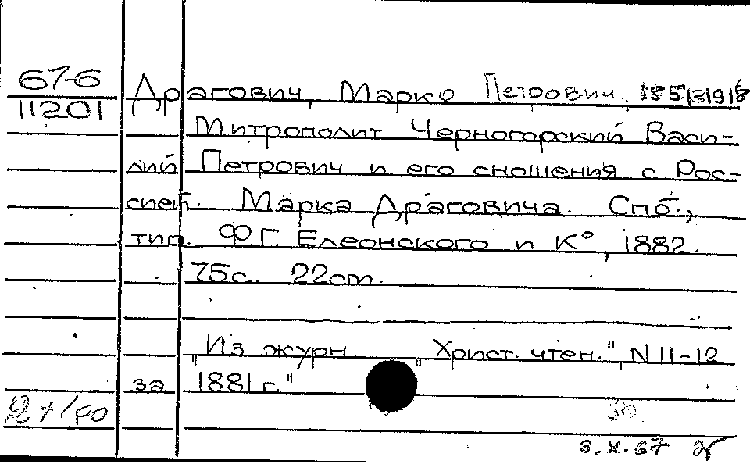 67-6
11201
Драгович, Марко Петрович,
Митрополит Черногорский Васи-
лий Петрович и его сношения с Рос-
сией. Марка Драговича. Спб.,
тип. Ф Г Елеонского и К°, 1882.
75с. 22см.
"Из журн "Христ. чтен.", N 11-12
за 1881 г."
30.
3.X.67